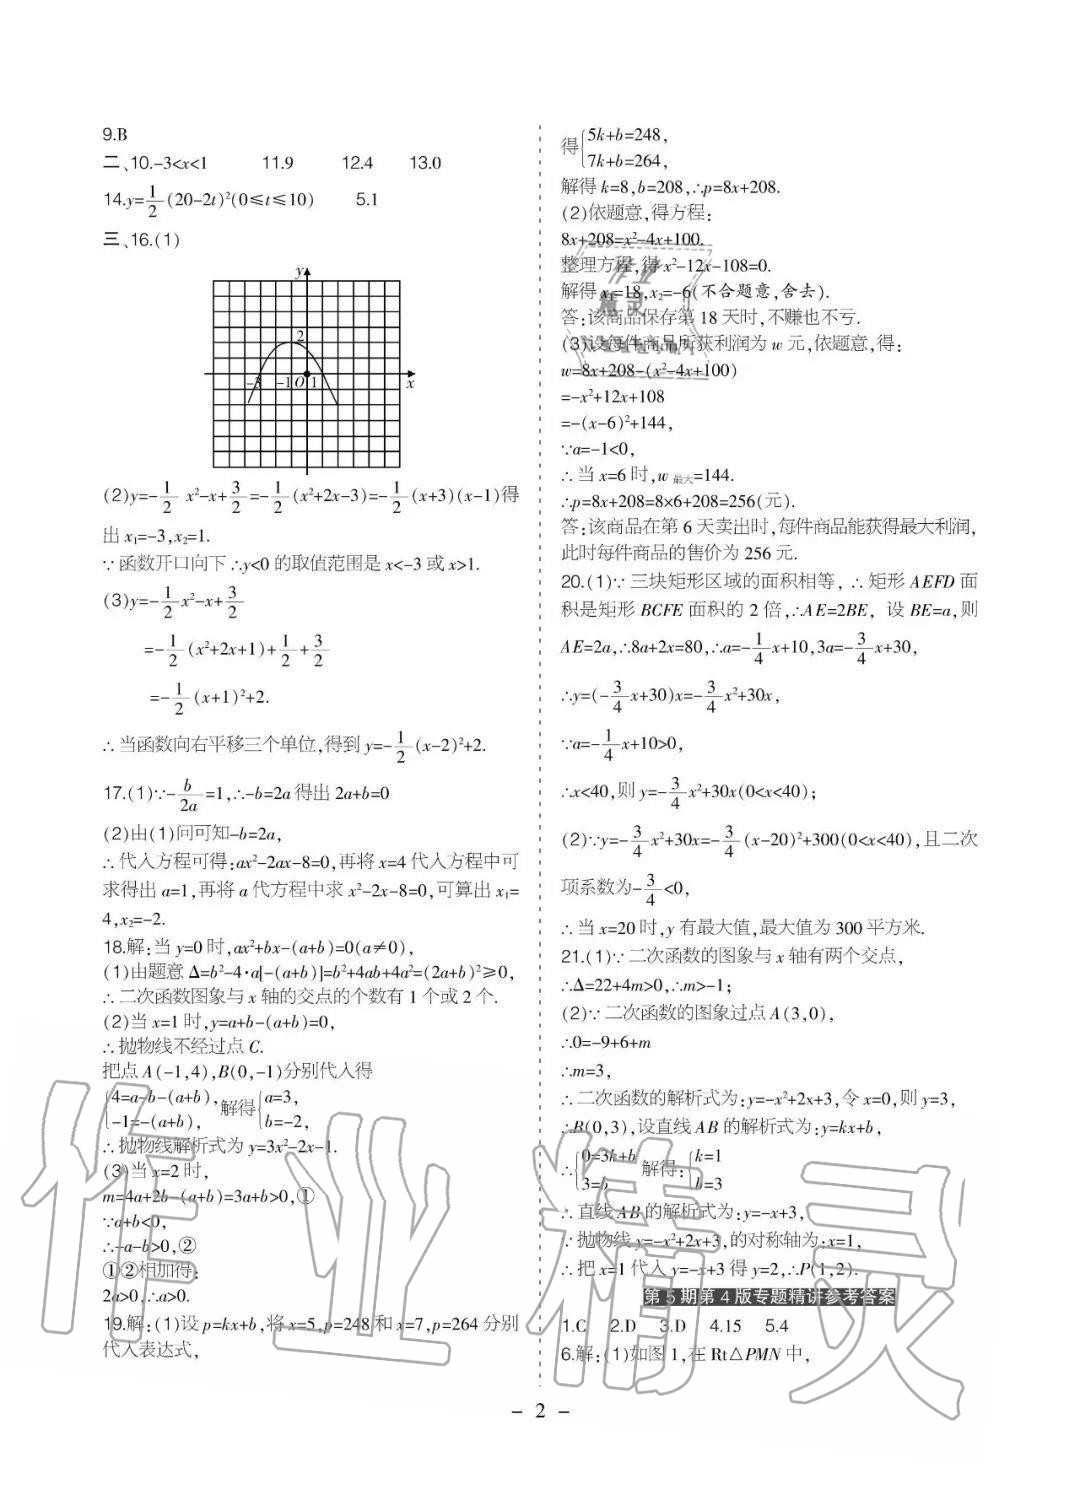 9.B
二、10.-3<x<1 11.9 12.4 13.0
14.y=1/2(20-2t)²(0≤t≤10) 5.1
三、16.(1)
y
2
-3 -1 O 1 x
(2)y=-1/2 x²-x+3/2=-1/2(x²+2x-3)=-1/2(x+3)(x-1)得
出 x₁=-3,x₂=1.
∵函数开口向下∴y<0 的取值范围是 x<-3 或 x>1.
(3)y=-1/2x²-x+3/2
=-1/2(x²+2x+1)+1/2+3/2
=-1/2(x+1)²+2.
∴当函数向右平移三个单位,得到 y=-1/2(x-2)²+2.
17.(1)∵-b/2a=1,∴-b=2a 得出 2a+b=0
(2)由(1)问可知-b=2a,
∴代入方程可得:ax²-2ax-8=0,再将 x=4 代入方程中可
求得出 a=1,再将 a 代方程中求 x²-2x-8=0,可算出 x₁=
4,x₂=-2.
18.解:当 y=0 时,ax²+bx-(a+b)=0(a≠0),
(1)由题意 Δ=b²-4·a[-(a+b)]=b²+4ab+4a²=(2a+b)²≥0,
∴二次函数图象与 x 轴的交点的个数有 1 个或 2 个.
(2)当 x=1 时,y=a+b-(a+b)=0,
∴抛物线不经过点 C.
把点 A(-1,4),B(0,-1)分别代入得
{4=a-b-(a+b), 解得{a=3,
-1=-(a+b), b=-2,
∴抛物线解析式为 y=3x²-2x-1.
(3)当 x=2 时,
m=4a+2b-(a+b)=3a+b>0,①
∵a+b<0,
∴-a-b>0,②
①②相加得:
2a>0,∴a>0.
19.解:(1)设 p=kx+b,将 x=5,p=248 和 x=7,p=264 分别
代入表达式,
得{5k+b=248,
7k+b=264,
解得 k=8,b=208,∴p=8x+208.
(2)依题意,得方程:
8x+208=x²-4x+100.
整理方程,得 x²-12x-108=0.
解得 x₁=18,x₂=-6(不合题意,舍去).
答:该商品保存第 18 天时,不赚也不亏.
(3)设每件商品所获利润为 w 元,依题意,得:
w=8x+208-(x²-4x+100)
=-x²+12x+108
=-(x-6)²+144,
∵a=-1<0,
∴当 x=6 时,w最大=144.
∴p=8x+208=8×6+208=256(元).
答:该商品在第 6 天卖出时,每件商品能获得最大利润,
此时每件商品的售价为 256 元.
20.(1)∵三块矩形区域的面积相等,∴矩形 AEFD 面
积是矩形 BCFE 面积的 2 倍,∴AE=2BE, 设 BE=a,则
AE=2a,∴8a+2x=80,∴a=-1/4x+10,3a=-3/4x+30,
∴y=(-3/4x+30)x=-3/4x²+30x,
∵a=-1/4x+10>0,
∴x<40,则 y=-3/4x²+30x(0<x<40);
(2)∵y=-3/4x²+30x=-3/4(x-20)²+300(0<x<40),且二次
项系数为-3/4<0,
∴当 x=20 时,y 有最大值,最大值为 300 平方米.
21.(1)∵二次函数的图象与 x 轴有两个交点,
∴Δ=22+4m>0,∴m>-1;
(2)∵二次函数的图象过点 A(3,0),
∴0=-9+6+m
∴m=3,
∴二次函数的解析式为:y=-x²+2x+3,令 x=0,则 y=3,
∴B(0,3),设直线 AB 的解析式为:y=kx+b,
∴{0=3k+b 解得:{k=1
3=b b=3
∴直线 AB 的解析式为:y=-x+3,
∵抛物线 y=-x²+2x+3,的对称轴为:x=1,
∴把 x=1 代入 y=-x+3 得 y=2,∴P(1,2).
第 5 期第 4 版专题精讲参考答案
1.C 2.D 3.D 4.15 5.4
6.解:(1)如图 1,在 Rt△PMN 中,
- 2 -
作业精灵
作业
精灵